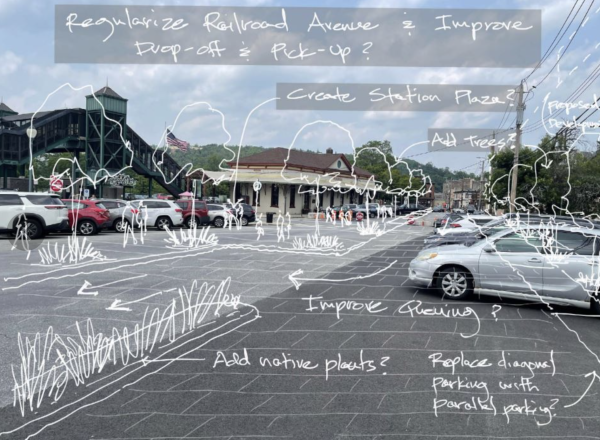 Regularize Railroad Avenue & Improve
Drop-off & Pick-up?
Create Station Plaza?
Add Trees?
Proposed
Improve Queuing?
Add native plants?
Replace diagonal
parking with
parallel parking?